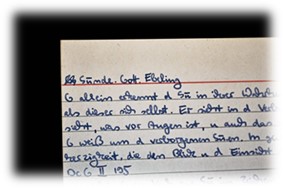 Sünde. Gott. Ebeling
G allein erkennt d Sü in ihrer Wahrh
als dieser sich selbst. Er sieht in d Verb
sieht, was vor Augen ist, u auch das
G weiß um d verborgenen Sünen. M
herzigkeit, die den Blick u d Einsicht
OcG II 195